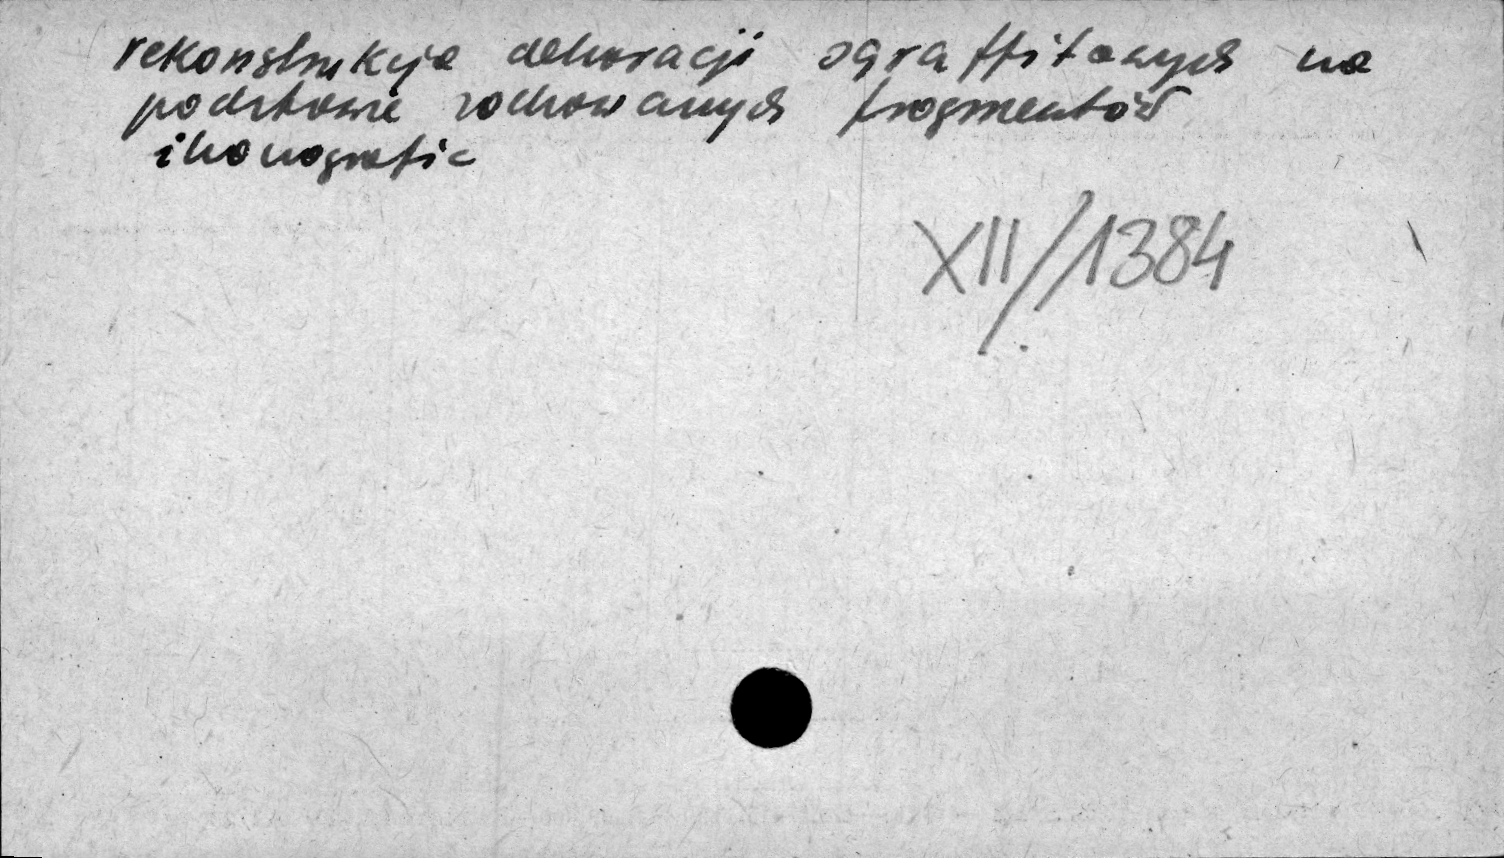 rekonstrukcja dekoracji sgraffitowych na
podstawie zachowanych fragmentów
ikonografia
XII/1384